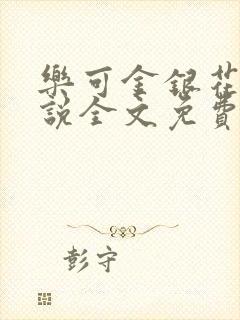 樂可金銀花
說全文免費
彭守